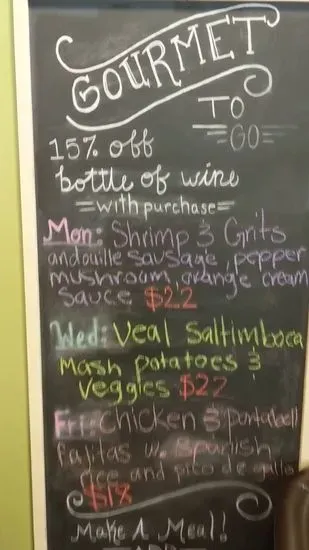 GOURMET
TO
GO
15% off
bottle of wine
with purchase
Mon: Shrimp & Grits
andouille sausage, pepper
mushroom, orange cream
sauce $22
Wed: Veal Saltimboca
Mash potatoes &
veggies $22
Fri: Chicken & portabell
fajitas w. Spanish
rice and pico de gallo
$18
Make A Meal!